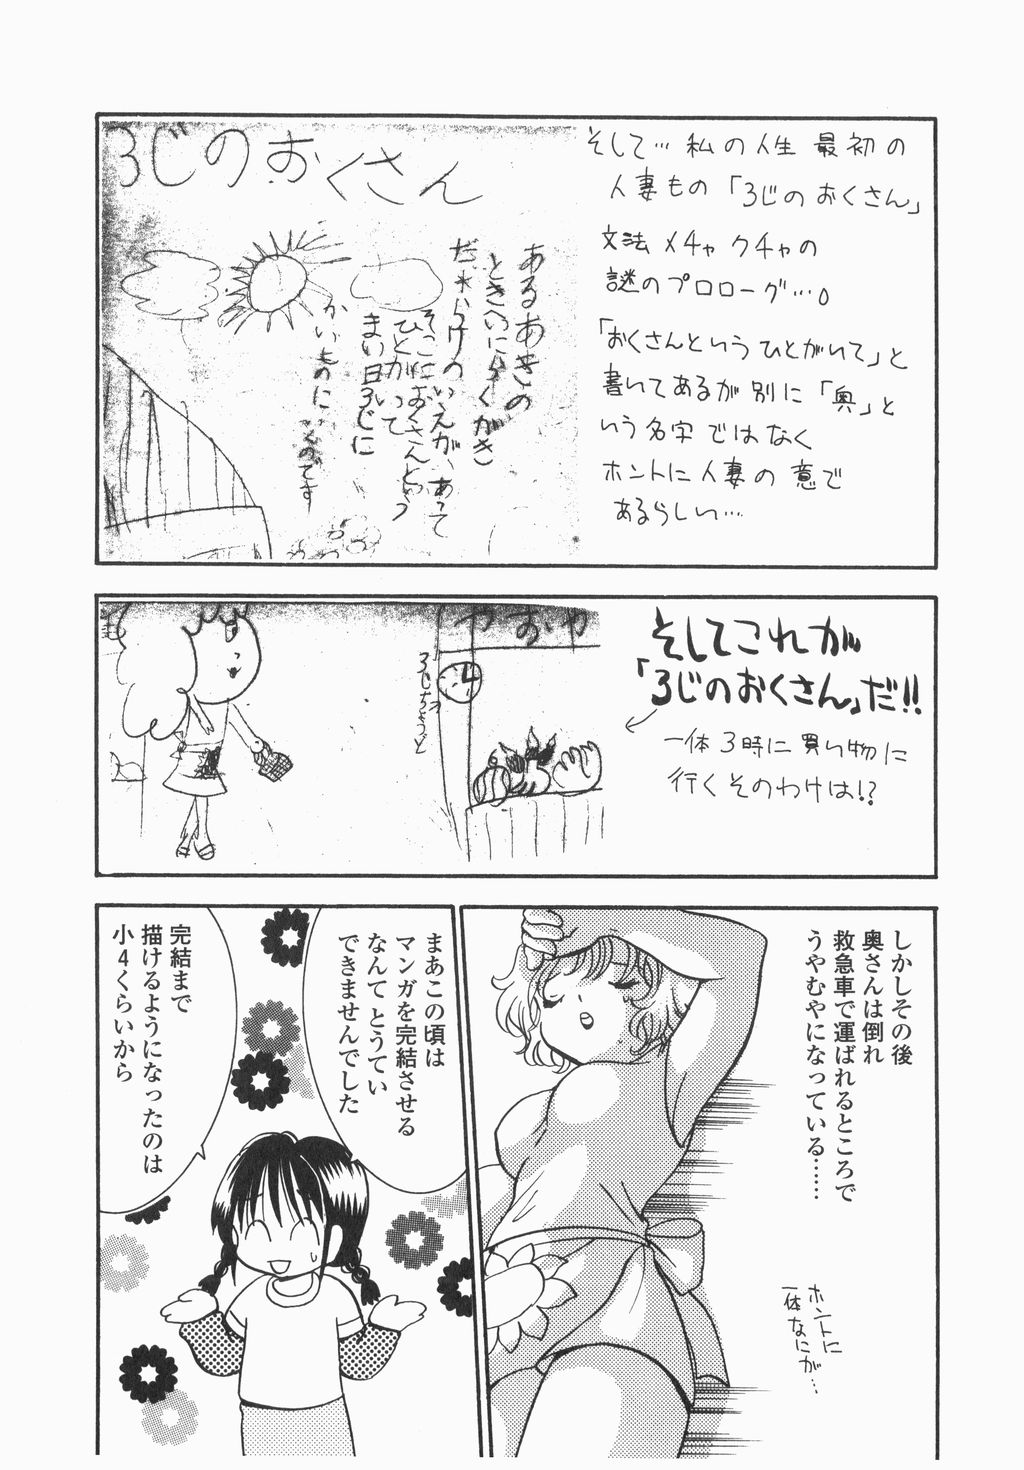 そして…私の人生 最初の
人妻もの「3じのおくさん」
文法メチャクチャの
謎のプロローグ…。
「おくさんというひとがいて」と
書いてあるが別に「奥」と
いう名字ではなく
ホントに人妻の意で
あるらしい…
3じのおくさん
あるあきの
ときへいにらくがき
だらけのいえが、あって
そこにおくさんという
ひとがいて
まい日3じに
かいものに
いくのです
そしてこれが
「3じのおくさん」だ!!
一体3時に買い物に
行くそのわけは!?
やおや
3じちょうど
しかしその後
奥さんは倒れ
救急車で運ばれるところで
うやむやになっている……
ホントに
一体なにが…
まあこの頃は
マンガを完結させる
なんてとうてい
できませんでした
完結まで
描けるようになったのは
小4くらいから